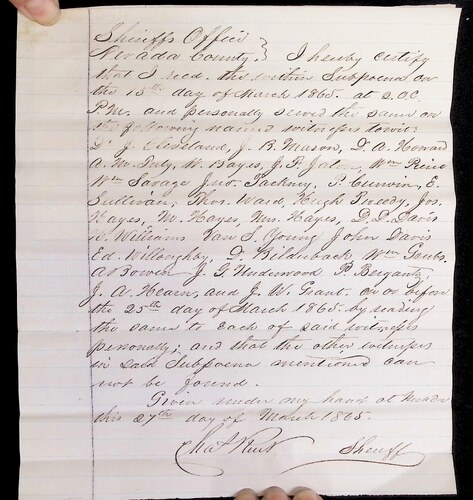 Sheriff's Office
Nevada County. } I hereby certify
that I recd. the within Subpoena on
the 15th day of March 1865. at 2. O.C.
P.M. and personally served the same on
the following named witnesses towit:
Dr J. Cleveland, J. B. Mason, D. A. Howard
A. M. July, W. Bayes, J. P. Wm Reice
Wm Savage Jno. Sackney, P. Curwin, E.
Sullivan, Thos. Ward, Hugh Tweedy, Jos.
Hayes, M. Hayes, Mrs. Hayes, D. D. Davis
Williams Van S. Young John Davis
Ed. Willoughby, D. Bilderback, Wm
Bowen J. G. Underwood P. Bergantz,
J. A. Hearn, and J. W. Grant. on or before
the 25th day of March 1865. by reading
the same to each of said witnesses
personally; and that the other witnesses
in said Subpoena mentioned can
not be found.
Given under my hand at
this 27th day of March 1865.
Sheriff